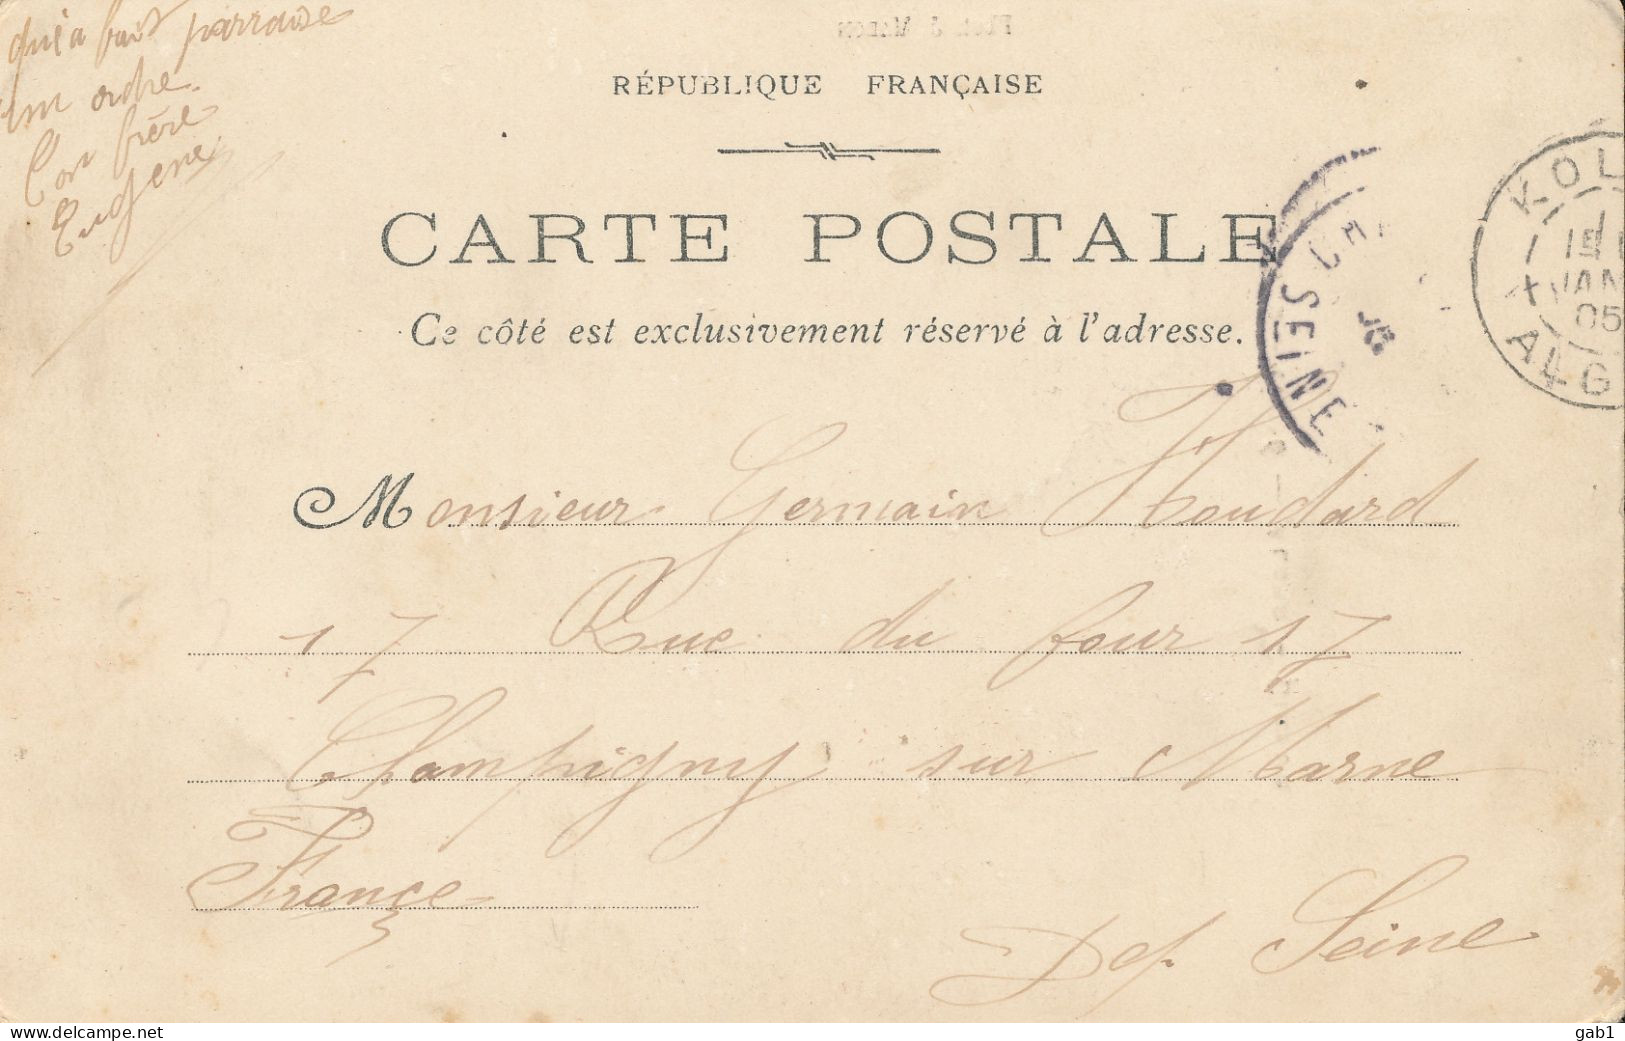 qui a fait parraise
un ordre.
Ton frère
Eugène
RÉPUBLIQUE FRANÇAISE
CARTE POSTALE
Ce côté est exclusivement réservé à l'adresse.
KOL
1E
JANV
05
ALG
SEINE
Monsieur Germain Houdard
17 Rue du four 17
Champigny sur Marne
France
Dep. Seine
www.delcampe.net
gab1